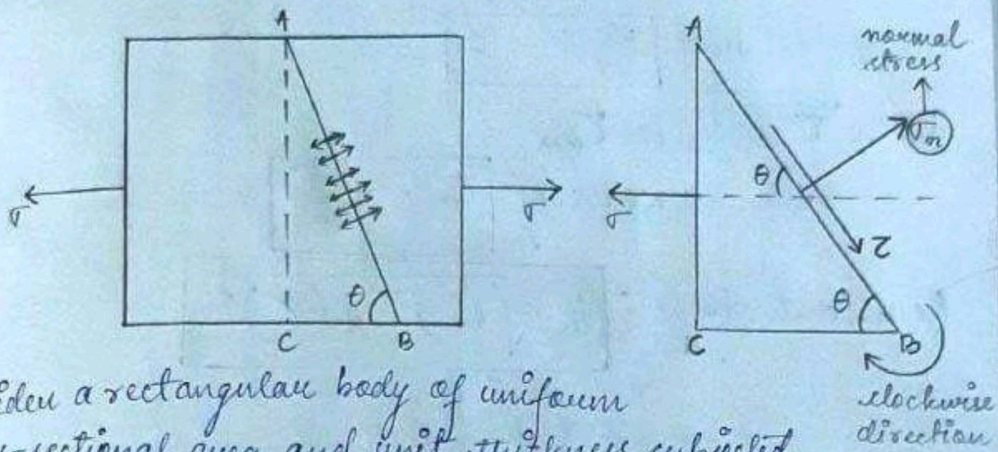 A
σ
σ
θ
C
B
A
normal
stress
σn
θ
σ
τ
θ
C
B
clockwise
direction
a rectangular body of uniform
area and unit thickness subjected